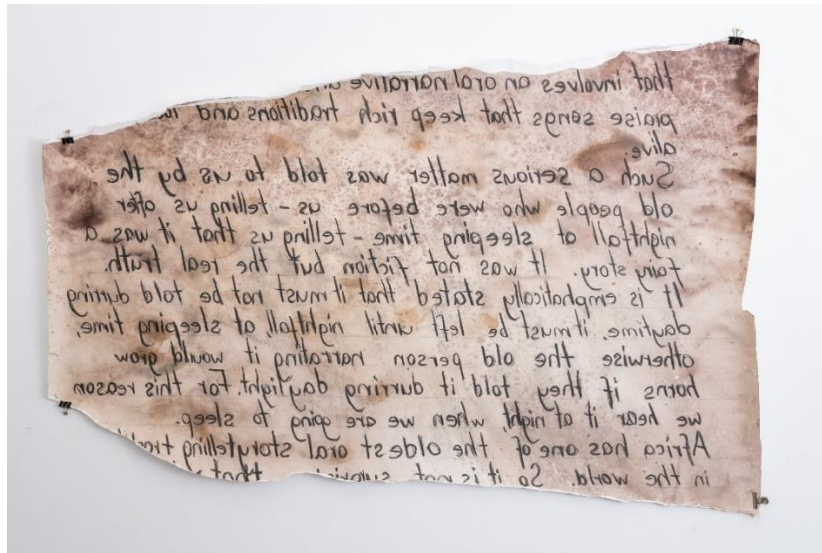 that involves an oral narrative
praise songs that keep rich traditions and
alive
Such a serious matter was told to us by the
old people who were before us - telling us after
nightfall at sleeping time - telling us that it was a
fairy story. It was not fiction but the real truth.
It is emphatically stated that it must not be told durring
daytime, it must be left until nightfall, at sleeping time,
otherwise the old person narrating it would grow
horns if they told it durring daylight. For this reason
we hear it at night, when we are going to sleep.
Africa has one of the oldest oral storytelling
in the world. So it is not that